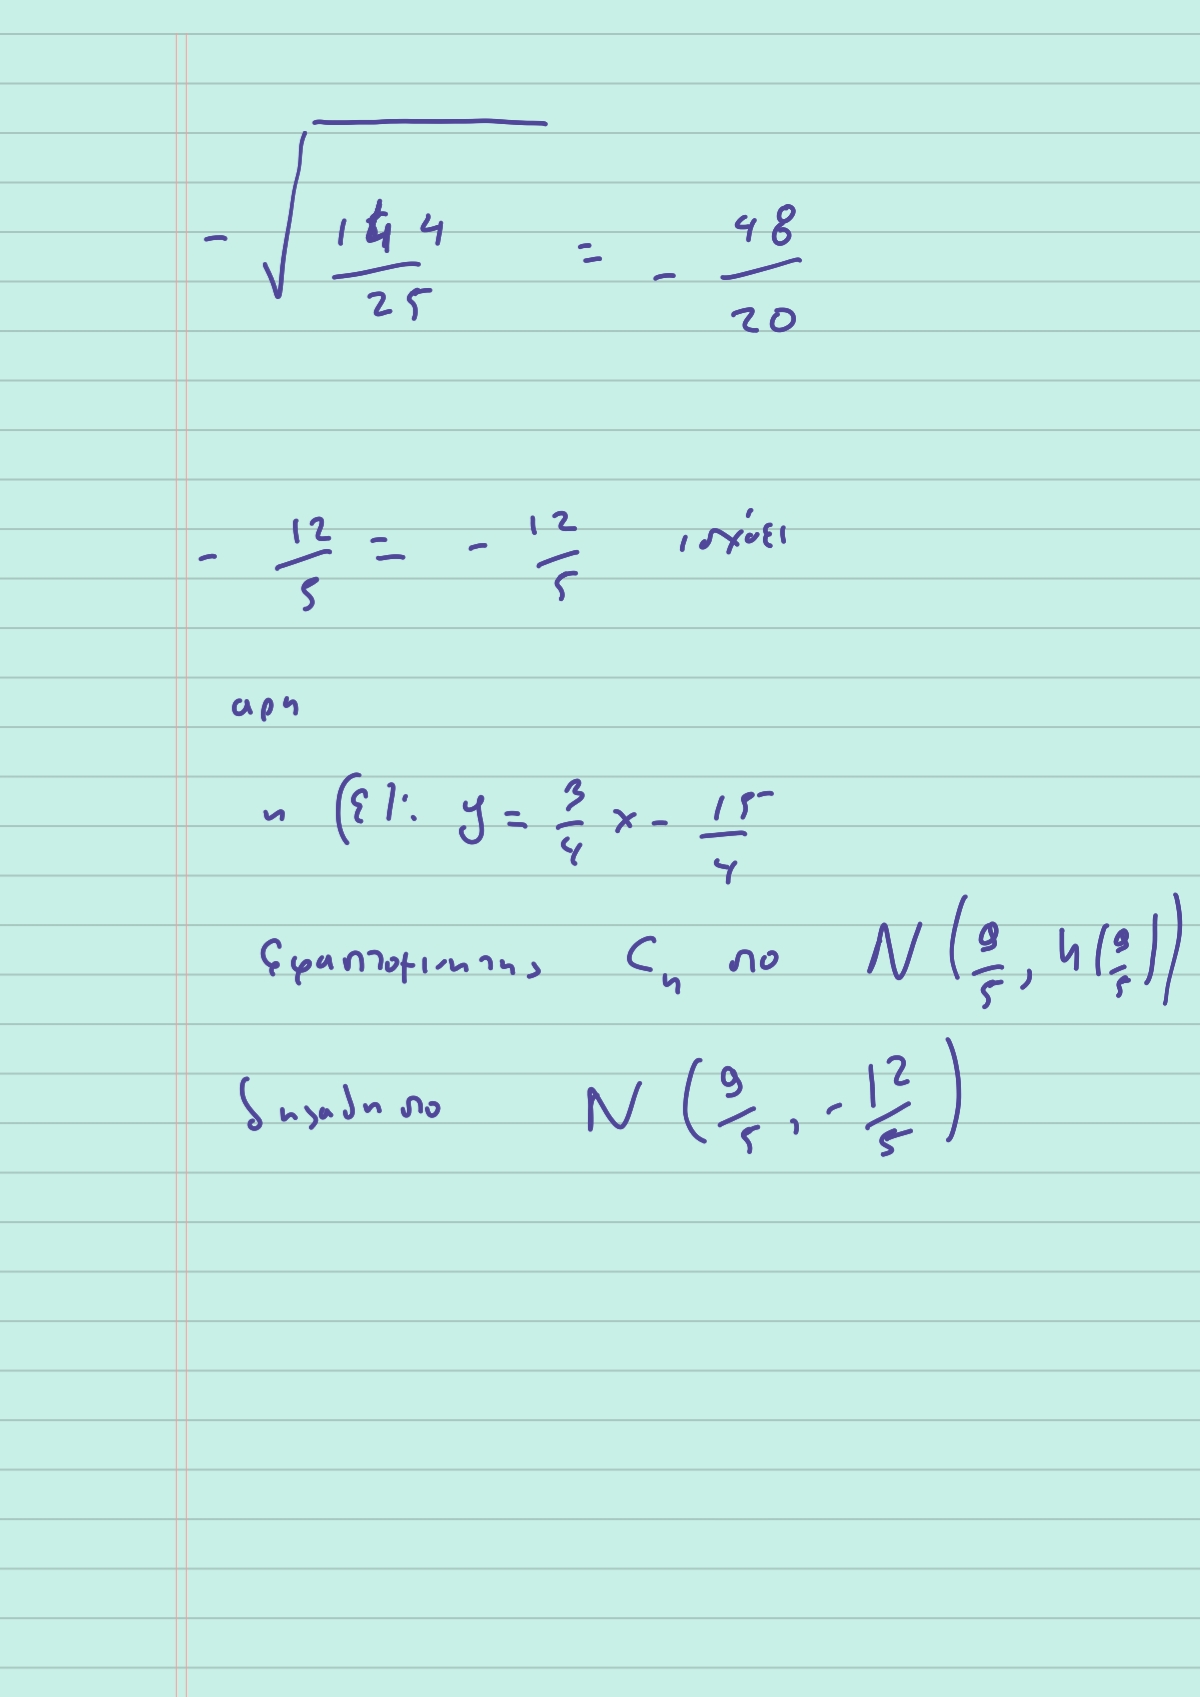 - √(144/25) = - 48/20
- 12/5 = - 12/5 ισχύει
αρη
η (ε): y = 3/4 x - 15/4
εφαπτομενη της Cη στο N(9/5, h(9/5))
δηλαδη στο N(9/5, - 12/5)